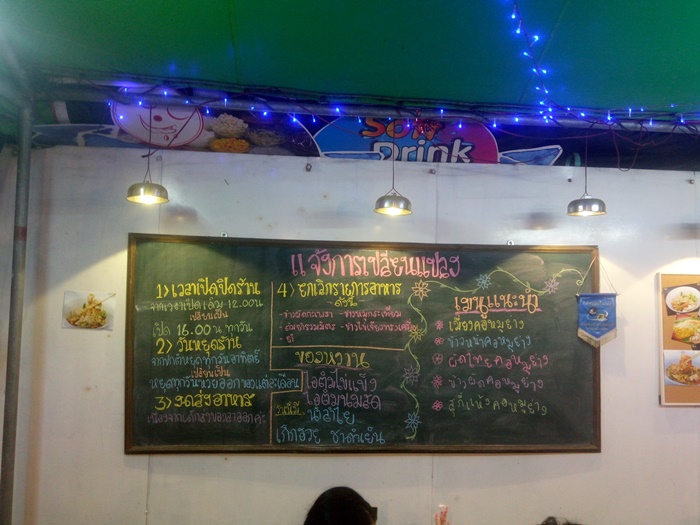 Soft
Drink
แจ้งการเปลี่ยนแปลง
1) เวลาเปิดปิดร้าน
จากเวลาเปิดเดิม 12.00 น
เปลี่ยนเป็น
เปิด 16.00 น ทุกวัน
2) วันหยุดร้าน
จากปกติหยุดทุกวันอาทิตย์
เปลี่ยนเป็น
หยุดทุกวันหวยออกของแต่ละเดือน
3) งดส่งอาหาร
4) ยกเลิกรายการอาหาร
ดังนี้
- ข้าวผัดกะเพรา - ข้าวหมูกระเทียม
ของหวาน
โอตั๋วไข่แข็ง
โอตั๋วนมสด
น้ำลำไย
เก๊กฮวย ชาดำเย็น
เมนูแนะนำ
เมี่ยงคอหมูย่าง
ข้าวหน้าคอหมูย่าง
ผัดไทยคอหมูย่าง
ข้าวผัดคอหมูย่าง
สุกี้แห้งคอหมูย่าง